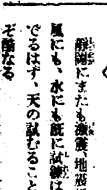 靜岡にまたも激震、地震
風にも、水にも既に試練は
でるはず、天の試むること
ぞ酷なる